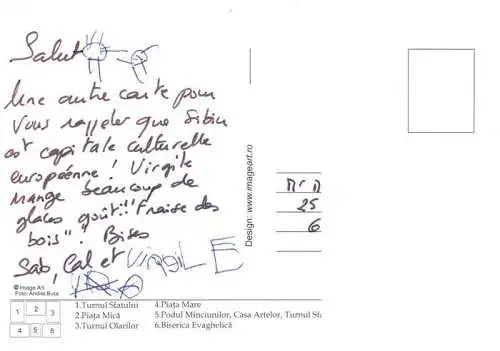 Salut
Une autre carte pour
vous rappeler que Sibiu
est capitale culturelle
européenne! Virgile
mange beaucoup de
glaces goût "Fraise des
bois". Bises
Sab, Cal et VIRGILE
Design: www.imageart.ro
Mr M
25
6
© Image Art
Foto: Andrei Buta
1 2 3
4 5 6
1.Turnul Sfatului
2.Piața Mică
3.Turnul Olarilor
4.Piața Mare
5.Podul Minciunilor, Casa Artelor, Turnul Sfa
6.Biserica Evaghelică